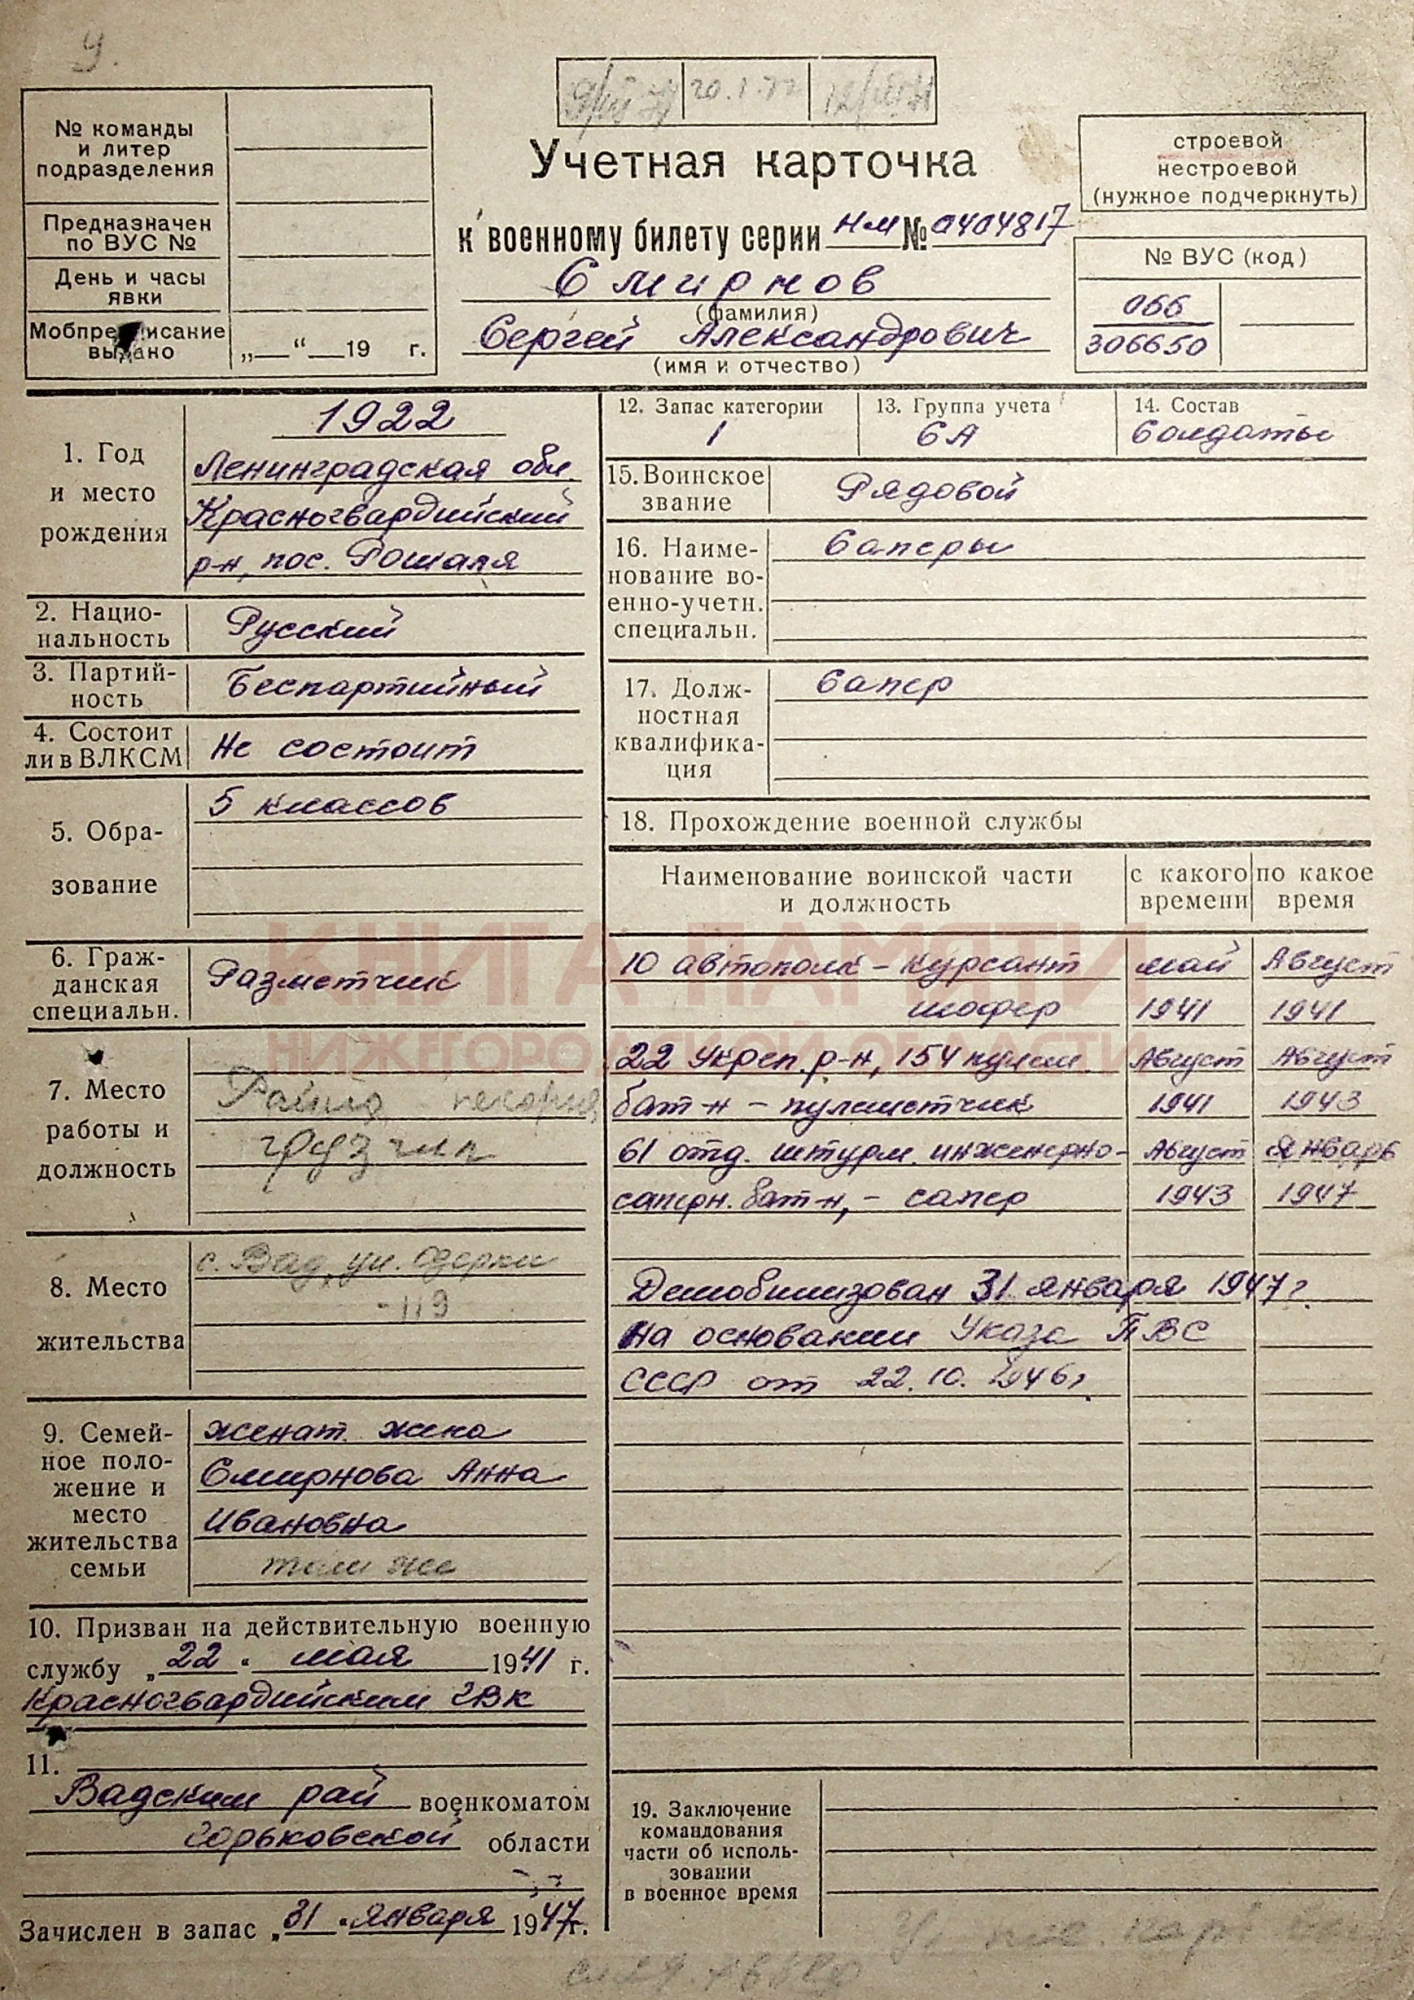 У.
20.1.72
№ команды
и литер
подразделения
Предназначен
по ВУС №
День и часы
явки
Мобпредписание
выдано
„—“ — 19 г.
Учетная карточка
к военному билету серии НМ № 0404817
Смирнов
(фамилия)
Сергей Александрович
(имя и отчество)
строевой
нестроевой
(нужное подчеркнуть)
№ ВУС (код)
066
306650
1. Год
и место
рождения
1922
Ленинградская обл.
Красногвардийский
р-н, пос. Рошаля
2. Нацио-
нальность
Русский
3. Партий-
ность
Беспартийный
4. Состоит
ли в ВЛКСМ
Не состоит
5. Обра-
зование
5 классов
6. Граж-
данская
специальн.
Разметчик
7. Место
работы и
должность
Райпо, пекарня
грузчик
8. Место
жительства
с. Вад, ул. Озерки
-119
9. Семей-
ное поло-
жение и
место
жительства
семьи
женат. жена
Смирнова Анна
Ивановна
там же
10. Призван на действительную военную
службу „22“ мая 1941 г.
Красногвардийским ГВК
11.
Вадским рай военкоматом
Горьковской области
Зачислен в запас „31“ января 1947 г.
12. Запас категории
1
13. Группа учета
СА
14. Состав
Солдаты
15. Воинское
звание
Рядовой
16. Наиме-
нование во-
енно-учетн.
специальн.
Саперы
17. Долж-
ностная
квалифика-
ция
Сапер
18. Прохождение военной службы
Наименование воинской части
и должность
с какого
времени
по какое
время
10 автополк – курсант май Август
шофер 1941 1941
22 Укреп. р-н, 154 пулем. Август Август
бат-н – пулеметчик 1941 1943
61 отд. штурм. инженерно- Август Январь
саперн. бат-н, – сапер 1943 1947
Демобилизован 31 января 1947 г.
на основании Указа ПВС
СССР от 22.10.1946 г.
19. Заключение
командования
части об исполь-
зовании
в военное время
КНИГА ПАМЯТИ
НИЖЕГОРОДСКОЙ ОБЛАСТИ